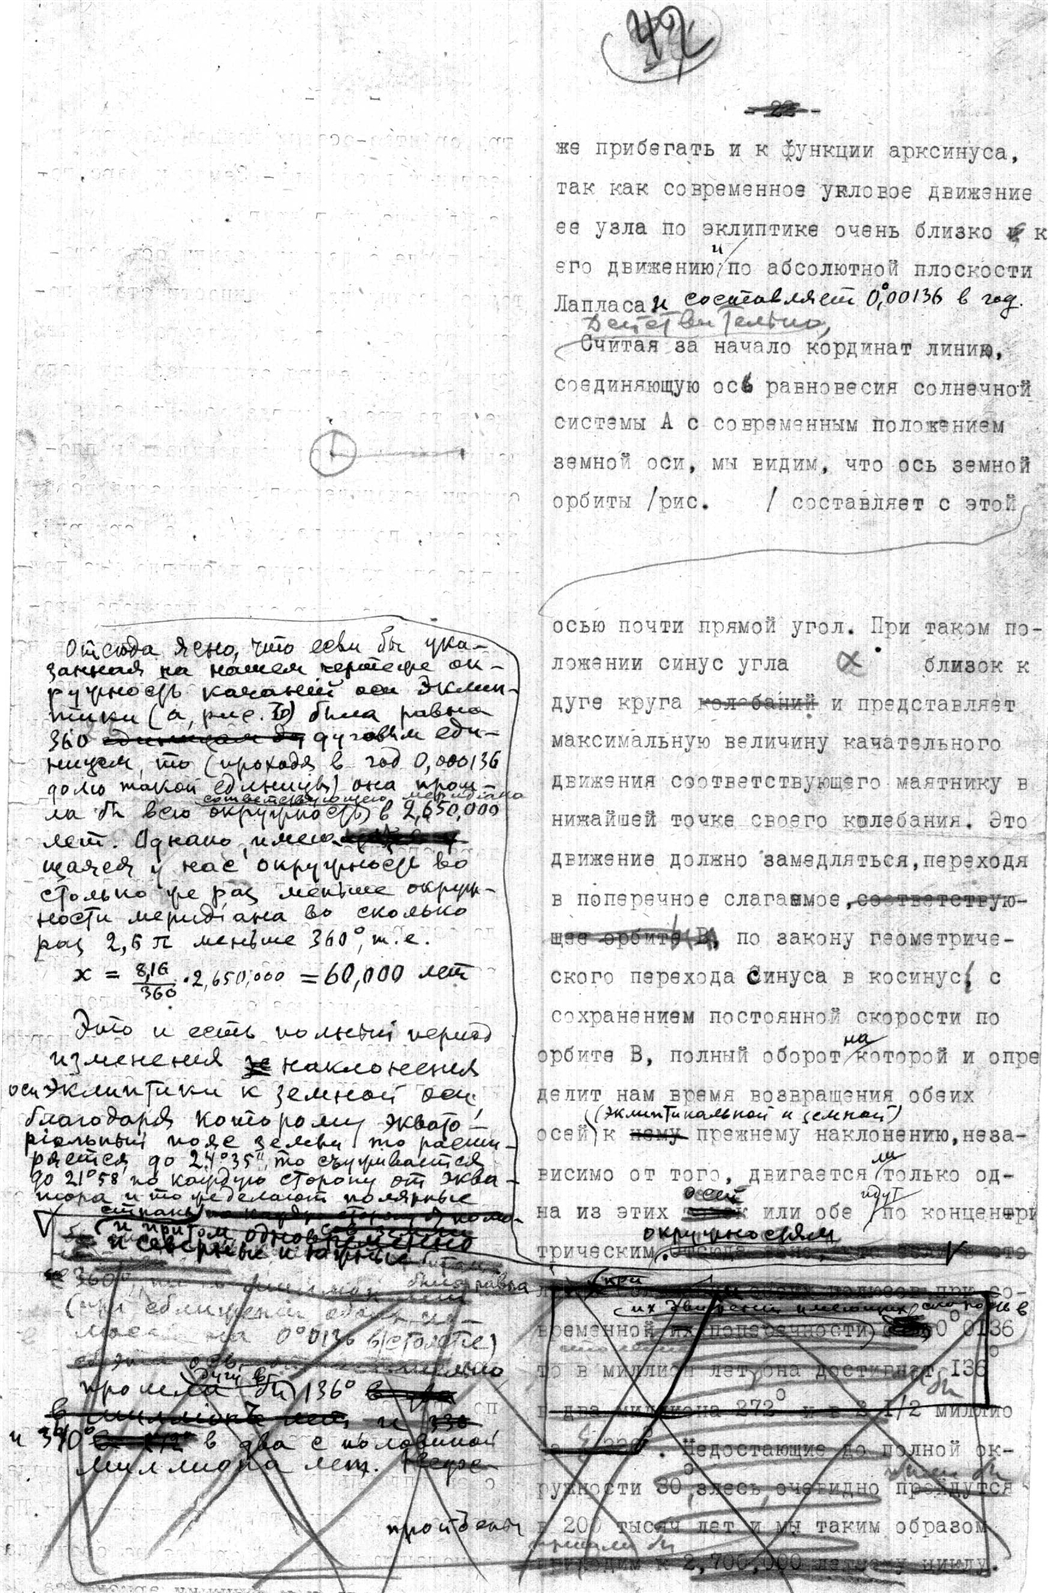 42
- 22 -
же прибегать и к функции арксинуса,
так как современное угловое движение
ее узла по эклиптике очень близко к
его движению и по абсолютной плоскости
Лапласа и составляет 0°,00136 в год.
Действительно,
Считая за начало кординат линию,
соединяющую ось равновесия солнечной
системы А с современным положением
земной оси, мы видим, что ось земной
орбиты /рис. / составляет с этой
осью почти прямой угол. При таком по-
ложении синус угла α близок к
дуге круга колебаний и представляет
максимальную величину качательного
движения соответствующего маятнику в
нижайшей точке своего колебания. Это
движение должно замедляться, переходя
в поперечное слагаемое, соответствую-
щее орбите В, по закону геометриче-
ского перехода синуса в косинус, с
сохранением постоянной скорости по
орбите В, полный оборот на которой и опре
делит нам время возвращения обеих
(эклиптикальной и земной)
осей к нему прежнему наклонению, неза-
висимо от того, двигается ли только од-
на из этих осей или обе идут по концентри
трическим окружностям.
Отсюда ясно, что если бы ука-
занная на нашем чертеже ок-
ружность качаний оси эклип-
тики (а, рис. ) была равна
360 дуговым еди-
ницам, то (проходя в год 0,000136
долю такой единицы) она прош-
ла бы всю окружность соответствующего меридиана в 2,650,000
лет. Однако, имею-
щаяся у нас окружность во
столько же раз меньше окруж-
ности меридиана во сколько
раз 2,6 π меньше 360°, т.е.
x = 8,16/360 · 2,650,000 = 60,000 лет
Это и есть полный период
изменения наклонения
оси эклиптики к земной оси,
благодаря которому эквато-
риальный пояс земли то расши-
ряется до 24°35', то съуживается
до 21°58' по каждую сторону от эква-
тора и то же делают полярные
страны
и притом одновременно
и северные и южные
(при
их движении
временной их поперечности) 0°0136
то в миллион лет она достигнет 136°
в два миллиона 272° и в 2 1/2 миллио
Недостающие до полной ок-
ружности 30° здесь, очевидно пройдутся
в 200 тысяч лет и мы таким образом
приходим к 2,700,000 летнему циклу.
0°0136 в столетие)
прошла бы 136°
и 340° в два с половиной
миллиона лет.